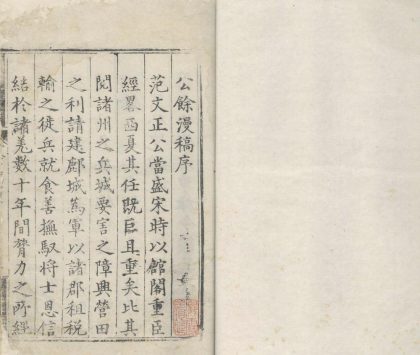 公餘漫稿序
范文正公當盛宋時以館閣重臣
經畧西夏其任既巨且重矣比其
閱諸州之兵城要害之障興營田
之利請建鄜城為軍以諸郡租税
輸之徙兵就食善撫馭將士恩信
結於諸羌數十年間膂力之所經